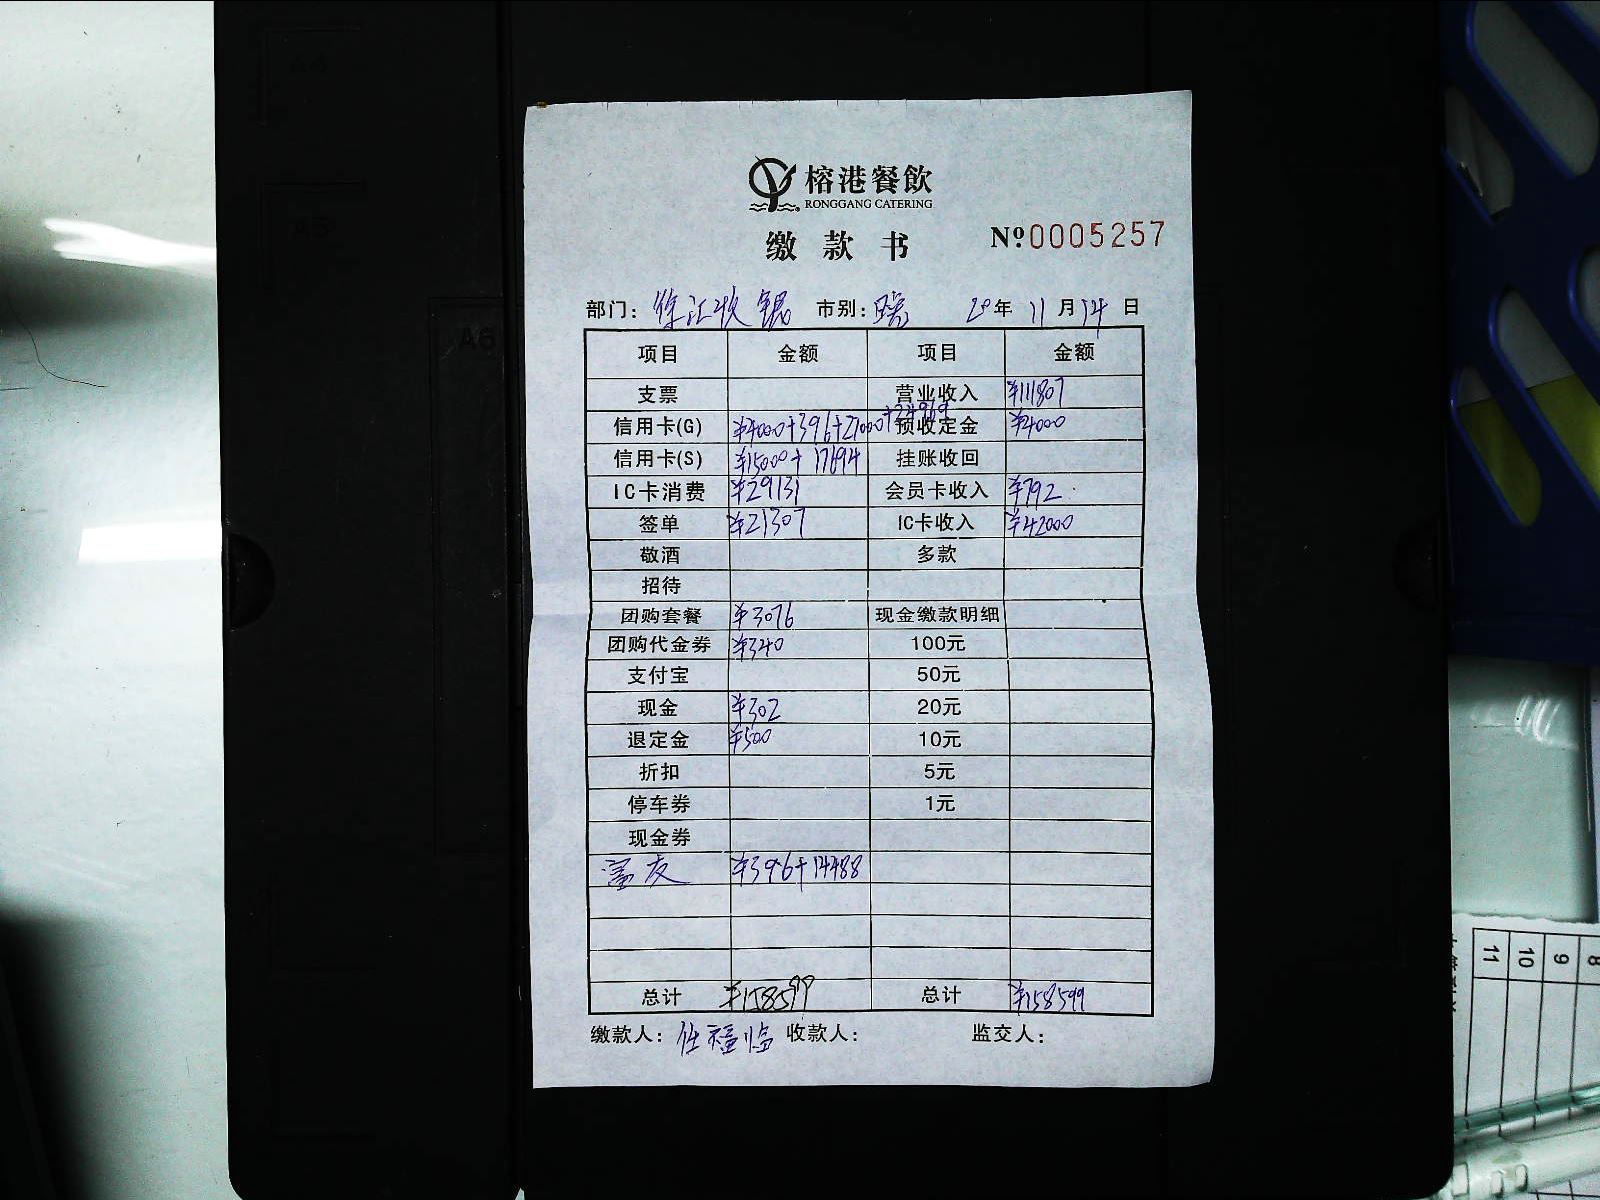 榕港餐飲
RONGGANG CATERING
缴款书 №0005257
部门: 徐汇收银 市别: 晚 20年 11月 14日
项目 金额 项目 金额
支票 营业收入 ¥111807
信用卡(G) ¥4000+396+27000+24969 预收定金 ¥4000
信用卡(S) ¥15000+17694 挂账收回
IC卡消费 ¥29131 会员卡收入 ¥792
签单 ¥21307 IC卡收入 ¥42000
敬酒 多款
招待
团购套餐 ¥3076 现金缴款明细
团购代金券 ¥340 100元
支付宝 50元
现金 ¥302 20元
退定金 ¥500 10元
折扣 5元
停车券 1元
现金券
富友 ¥396+14488
总计 ¥158599 总计 ¥158599
缴款人: 任福临 收款人: 监交人:
A4
A5
A6
11
10
9
8